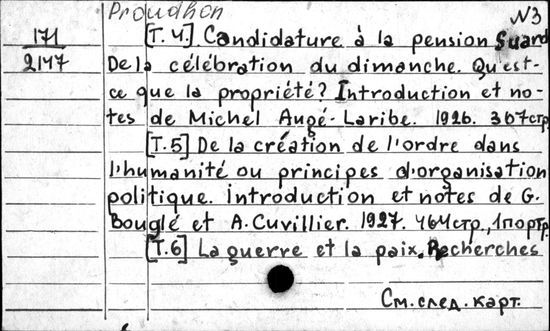 Proudhon N3
171
2147
[T.4]. Candidature à la pension Suard
De la célébration du dimanche. Qu'est-
ce que la propriété? Introduction et no-
tes de Michel Augé-Laribe. 1926. 367стр
[T.5] De la création de l'ordre dans
l'humanité ou principes d'organisation
politique. Introduction et notes de G.
Bouglé et A. Cuvillier. 1927. 464стр., 1портр.
[T.6] La guerre et la paix. Recherches
См. след. карт.